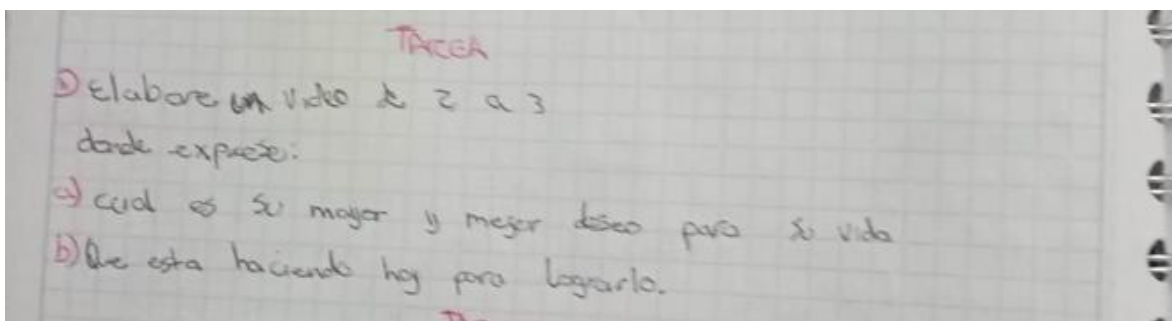 TAREA
① Elabore un video de 2 a 3
donde exprese:
a) cual es su mayor y mejor deseo para su vida
b) Que esta haciendo hoy para lograrlo.